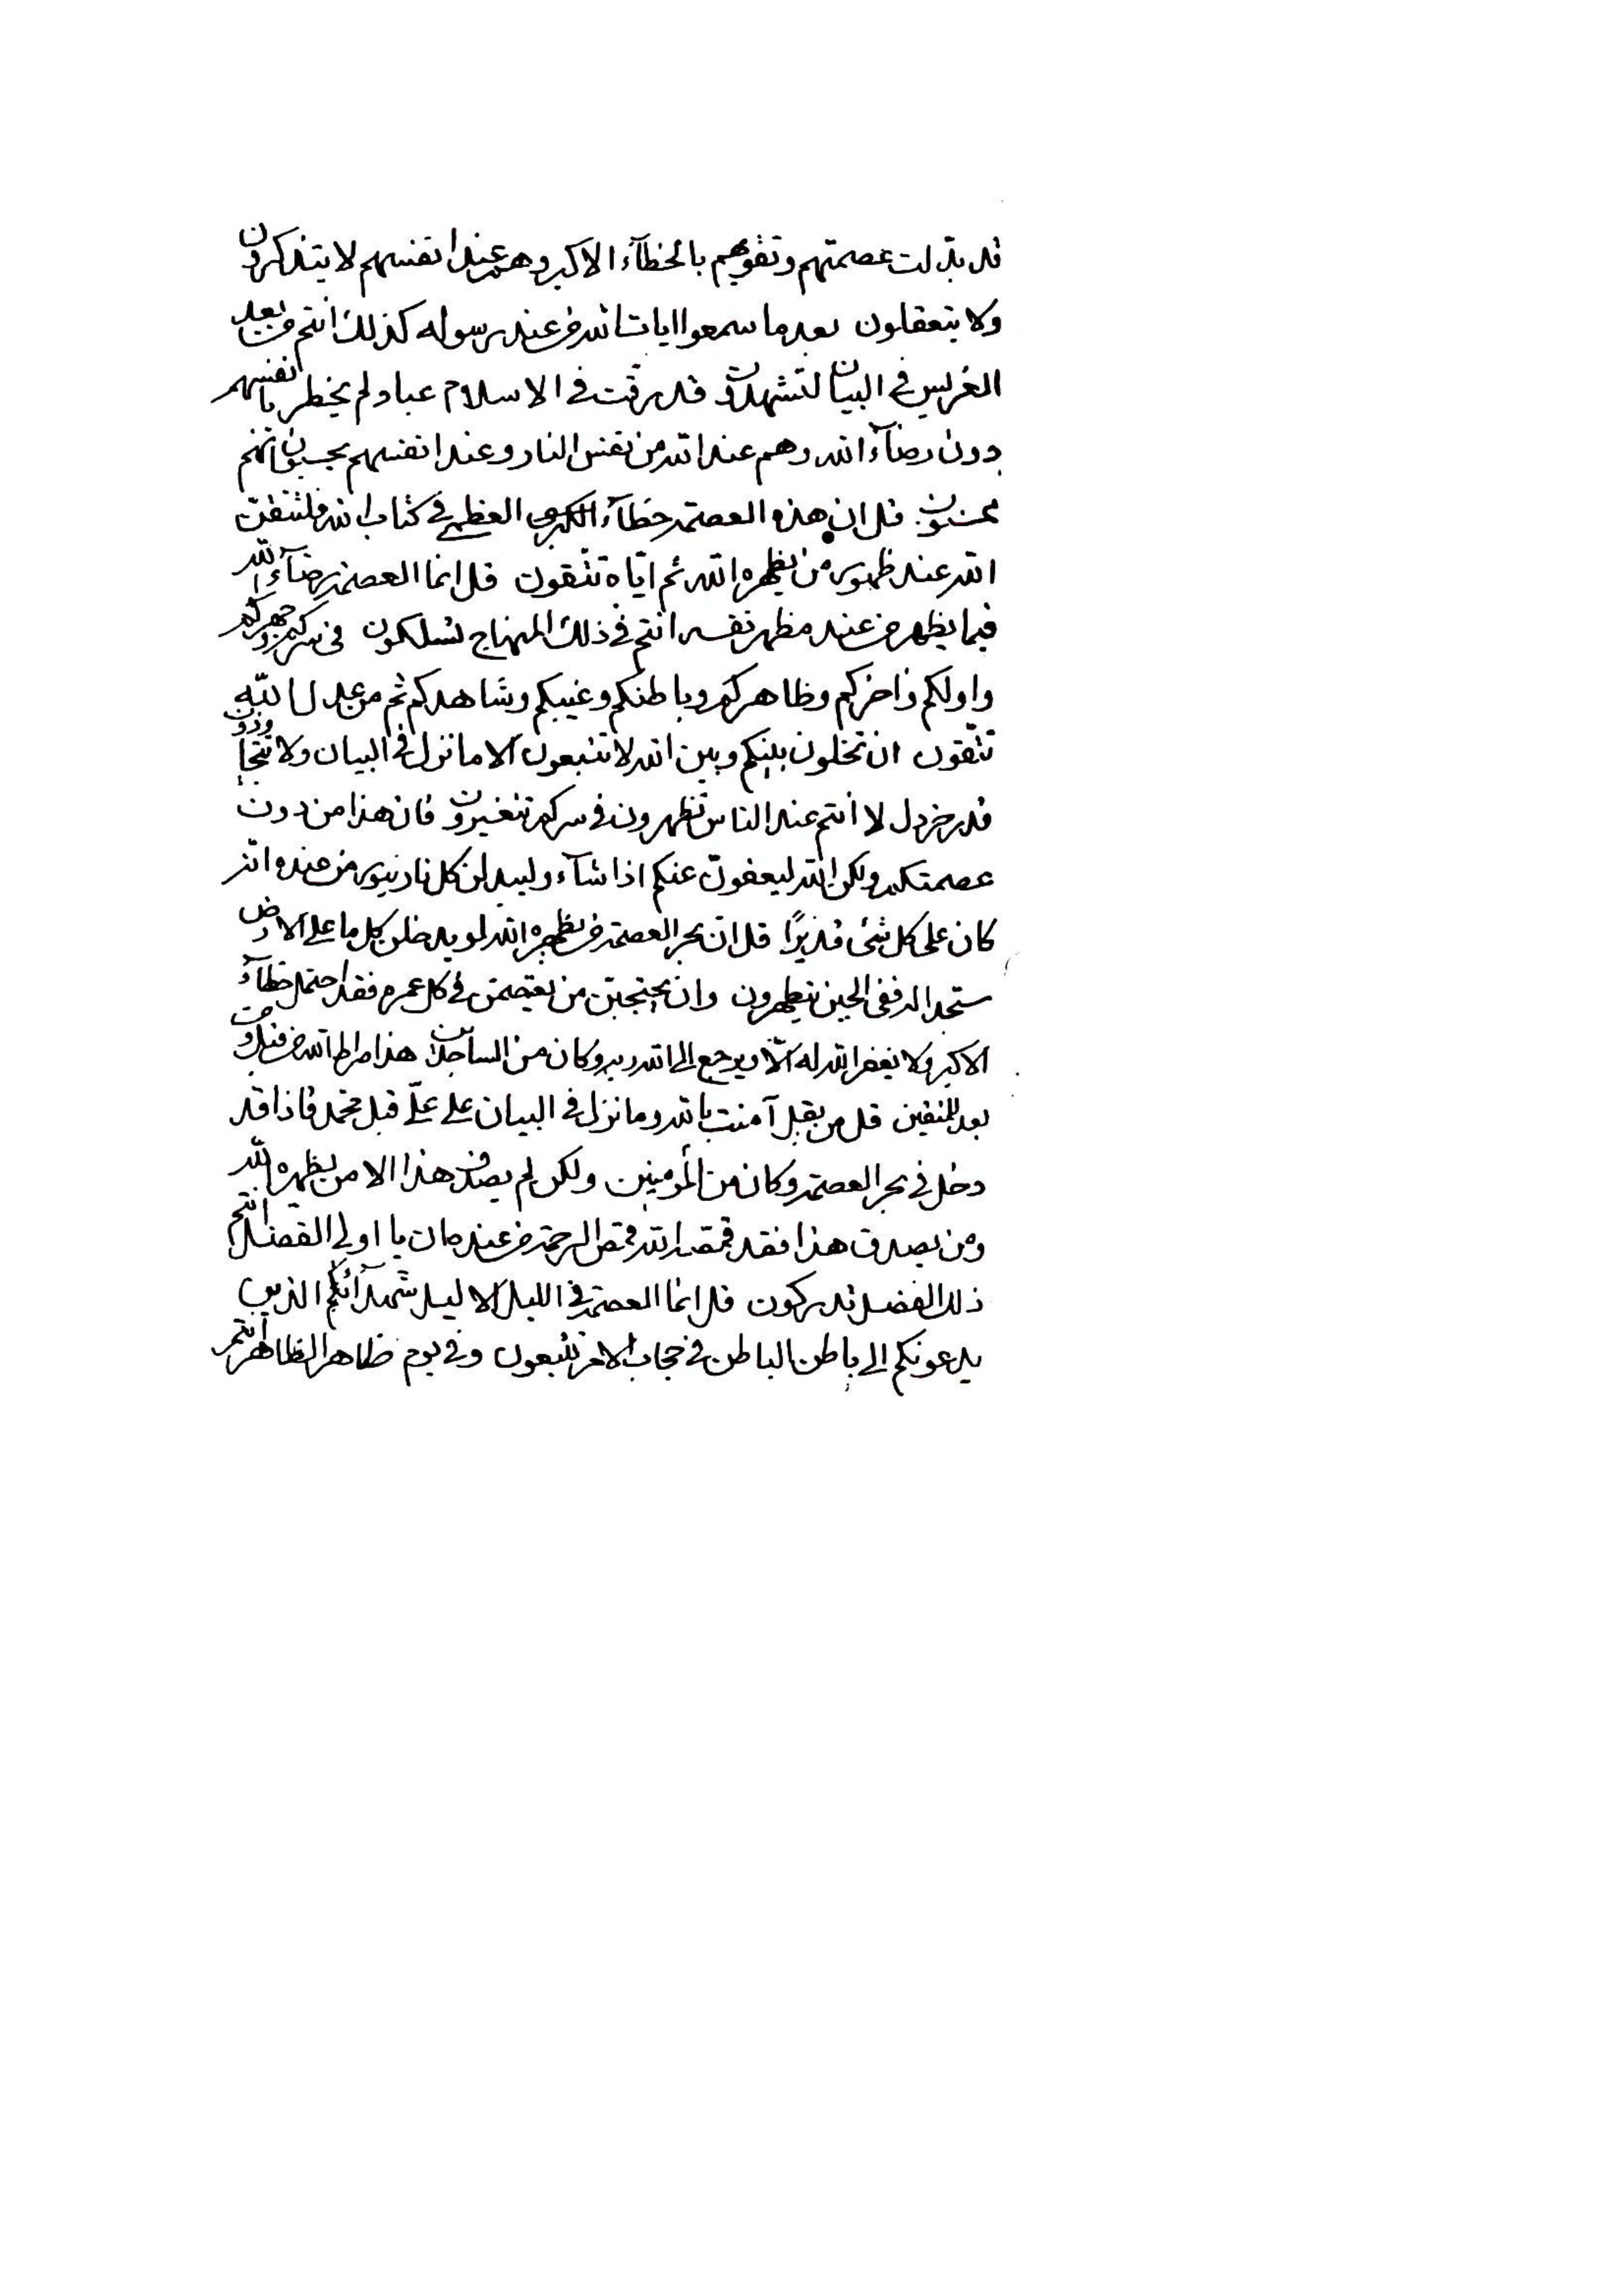 قد بدّلت عصمتهم وتقويهم بالخطآء الاكبر وهم عند انفسهم لا يتذكرون
ولا يتعقلون بعد ما سمعوا ايات الله من عند رسوله كذلك انتم من بعد
الغرس في البيان لتشهدون قد رقت في الاسلام عباد لم يخطر بانفسهم
دون رضآء الله وهم عند الله من نفس النار وعند انفسهم يحسبون انهم
محسنون قل ان هذه العصمة خطآء الكبرى العظمى في كتاب الله فلتتقن
الله عند ظهور من يظهره الله ثم اياه تتقون قل انما العصمة رضآء الله
فيما يظهر من عند مظهر نفسه انتم في ذلك المنهاج لتسلكون في سركم وجهركم
واولكم واخركم وظاهركم وباطنكم وغيبكم وشاهدكم ثم من عدل الله
تتقون ان تخلون بينكم وبين الله لا تتبعون الا ما نزل في البيان ولا تتجاوزون
قدر خردل لا انتم عند الناس تظهرون في سركم تتغيرون فان هذا من دون
عصمتكم ولكن الله ليعفون عنكم اذا شآء وليبدلن كل نار بنور من عنده انه
كان على كل شئ قديرًا قل ان بحر العصمة من يظهره الله لو يدخلن كل ما على الارض
ستجد الله ففي الحين يطهرون وان يحتجبن من يعتصمن في كل عمره فقد احتمل خطآء
الاكبر ولا يغفر الله له الّا ويرجع الى الله ربه وكان من الساجدين هذا صراط الله من قبل ومن
بعد للمتقين قل من يقل آمنت بالله وما نزل في البيان على عليّ قبل محمد فاذا قد
دخل في بحر العصمة وكان من المؤمنين ولكن لم يصدق هذا الا من يظهره الله
ومن يصدق هذا فقد قمّصه الله قمص الرحمة من عنده ان يا اولي الفضل انتم
ذلك الفضل تدركون قل انما العصمة في الليل الاليل شهدآئكم الذين
يدعونكم الى باطن الباطن في حجاب الامر تتبعون وفي يوم ظاهر الظاهر انتم